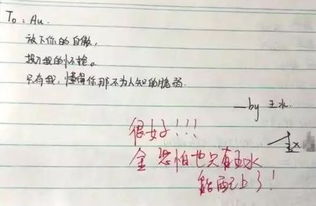 To: Au.
放下你的自傲,
投入我的怀抱。
只有我,懂得你那不为人知的脆弱.
——by 王水
很好!!!
金恐怕也只有王水
能配了!